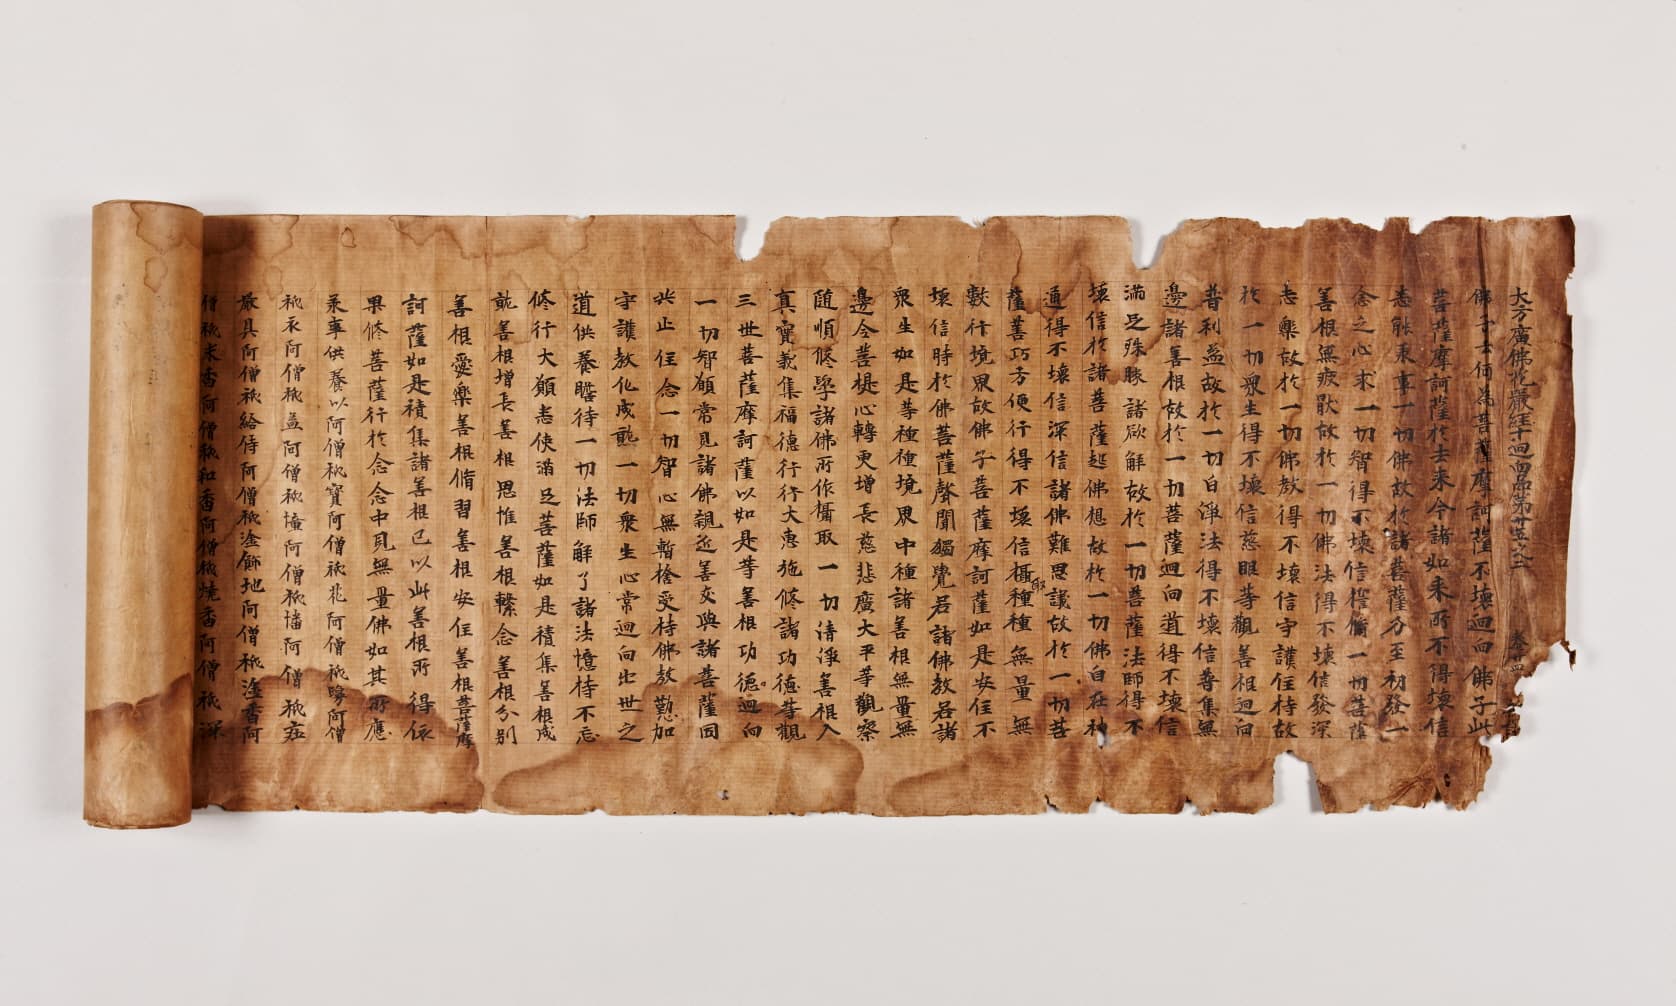 大方廣佛花嚴經十迴向品第廿五之二 卷廿四
佛子云何為菩薩摩訶薩不壞迴向佛子此
菩薩摩訶薩於去来今諸如来所不得壞信
悉能承事一切佛故於諸菩薩分至初發一
念之心求一切智得不壞信脩一切菩薩
善根無疲猒故於一切佛法得不壞信發深
志樂故於一切佛教得不壞信守護住持故
於一切眾生得不壞信慈眼等觀善根迴向
普利益故於一切白淨法得不壞信普集無
邊諸善根故於一切菩薩迴向道得不壞信
滿足殊勝諸欲解故於一切菩薩法師得不
壞信於諸菩薩起佛想故於一切佛自在神
通得不壞信深信諸佛難思議故於一切菩
薩善巧方便行得不壞信攝取種種無量無
數行境界故佛子菩薩摩訶薩如是安住不
壞信時於佛菩薩聲聞獨覺若諸佛教若諸
眾生如是等種種境界中種諸善根無量無
邊令菩提心轉更增長慈悲廣大平等觀察
隨順修學諸佛所作攝取一切清淨善根入
真實義集福德行行大惠施修諸功德等觀
三世菩薩摩訶薩以如是等善根功德迴向
一切智願常見諸佛親近善友與諸菩薩同
共止住念一切智心無暫捨受持佛教懃加
守護教化成熟一切眾生心常迴向出世之
道供養瞻待一切法師解了諸法憶持不忘
修行大願悉使滿足菩薩如是積集善根成
就善根增長善根思惟善根繫念善根分別
善根愛樂善根脩習善根安住善根菩薩摩
訶薩如是積集諸善根已以此善根所得依
果修菩薩行於念念中見無量佛如其所應
承事供養以阿僧祇寶阿僧祇花阿僧祇鬘阿僧
祇衣阿僧祇蓋阿僧祇幢阿僧祇幡阿僧祇莊
嚴具阿僧祇給侍阿僧祇塗飾地阿僧祇塗香阿
僧祇末香阿僧祇和香阿僧祇燒香阿僧祇深